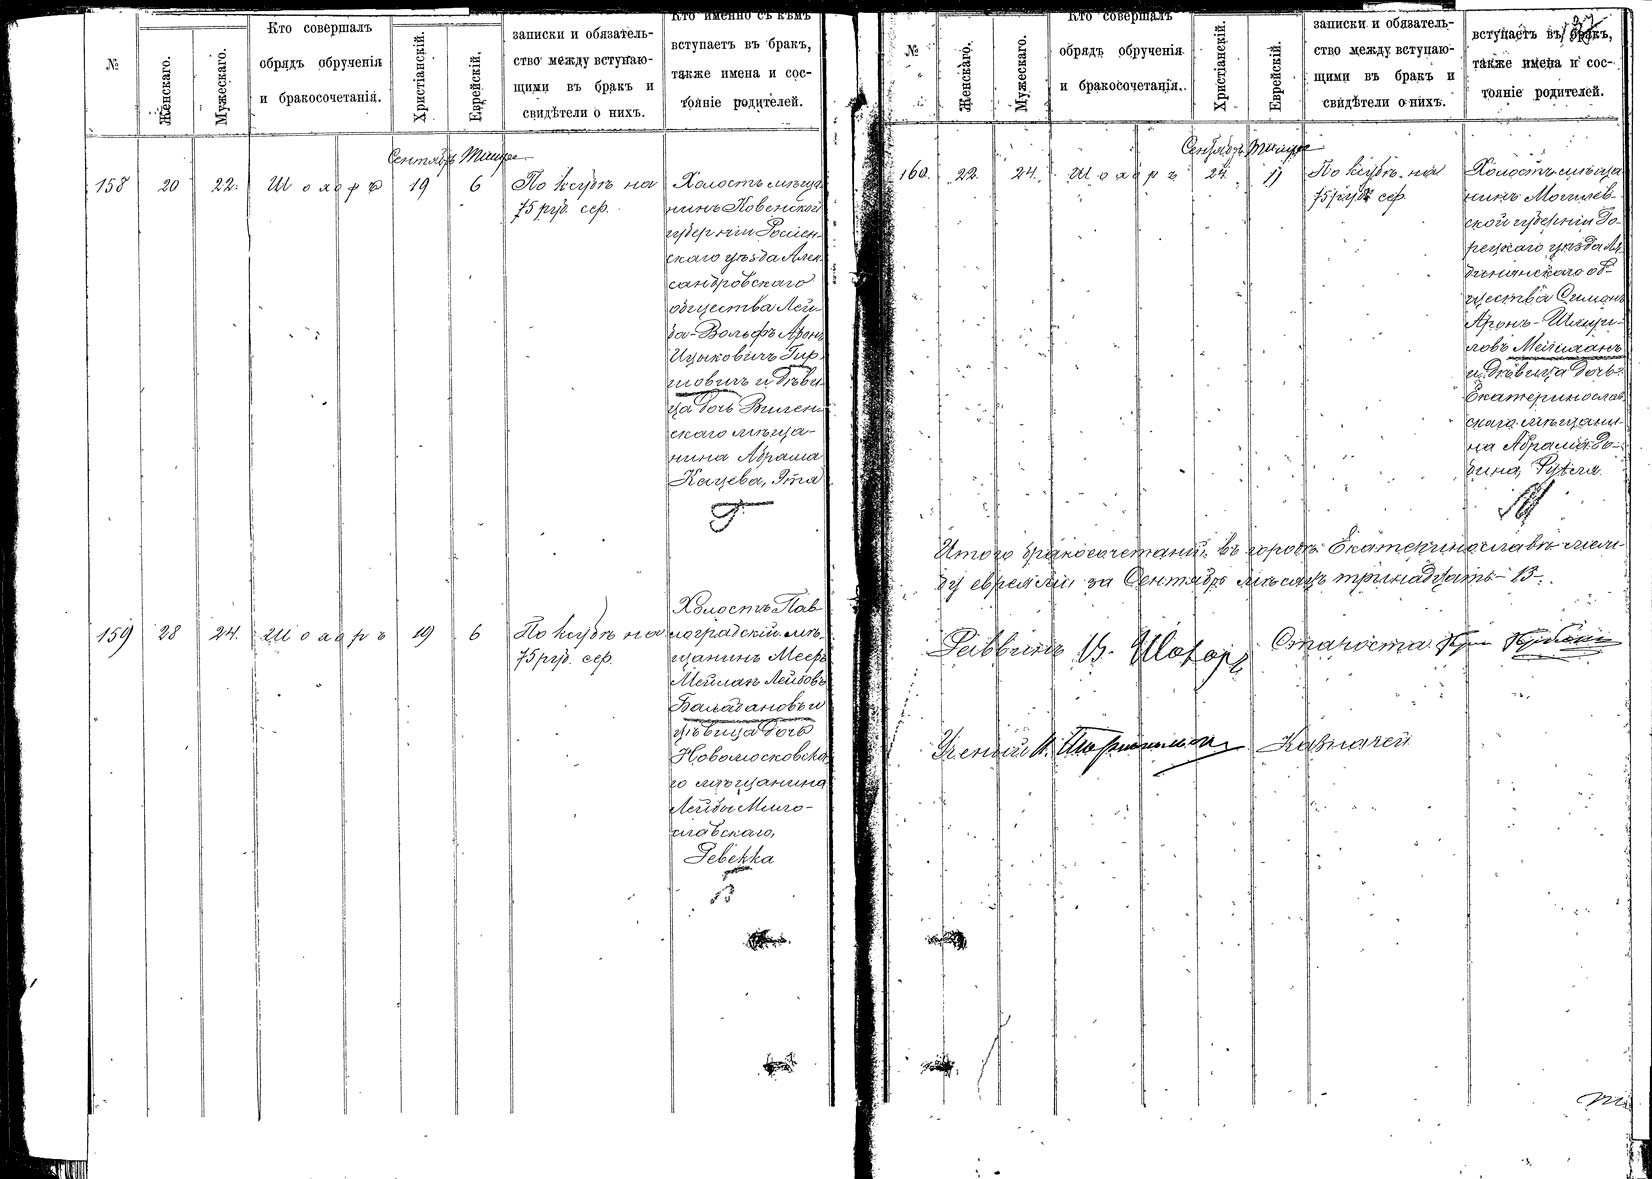 №
Женскаго.
Мужескаго.
Кто совершалъ
обрядъ обрученія
и бракосочетанія.
Христіанскій.
Еврейскій.
записки и обязатель-
ство между вступаю-
щими въ бракъ и
свидѣтели о нихъ.
Кто именно съ кѣмъ
вступаетъ въ бракъ,
также имена и сос-
тояніе родителей.
Сентябрь Тишре
158 20 22. Шохоръ 19 6
По ксубѣ на
75 руб. сер.
Холостъ мѣща
нинъ Ковенской
губерніи Россіен-
скаго уѣзда Алек
сандровскаго
общества Лей-
ба-Вольфъ Аронъ
Ицыковичъ Гир
шовичъ и дѣви
ца дочь Вилен-
скаго мѣща-
нина Абрама
Кацева, Этя
159 28 24. Шохоръ 19 6
По ксубѣ на
75 руб. сер.
Холостъ Пав-
лоградскій мѣ-
щанинъ Мееръ
Мейлахъ Лейбовъ
Балабановъ и
дѣвица дочь
Новомосковска
го мѣщанина
Лейбы Миго-
славскаго,
Ревекка
№
Женскаго.
Мужескаго.
Кто совершалъ
обрядъ обрученія
и бракосочетанія.
Христіанскій.
Еврейскій.
записки и обязатель-
ство между вступаю-
щими въ бракъ и
свидѣтели о нихъ.
вступаетъ въ бракъ,
также имена и сос-
тояніе родителей.
Сентябрь Тишре
160. 22. 24. Шохоръ 24. 11
По ксубѣ на
75 руб. сер.
Холостъ мѣща
нинъ Могилев-
ской губерніи Го-
рецкаго уѣзда
общества Симонъ
Аронъ-Шмуи-
ловъ Мейманъ
и дѣвица дочь
Екатеринослав
скаго мѣщани-
на Абрама До-
бина, Рухля.
Итого бракосочетаній въ городѣ Екатеринославѣ меж-
ду евреями за Сентябрь мѣсяцъ тринадцать - 13 -.
Раввинъ Шохоръ Староста
Ученый Казначей